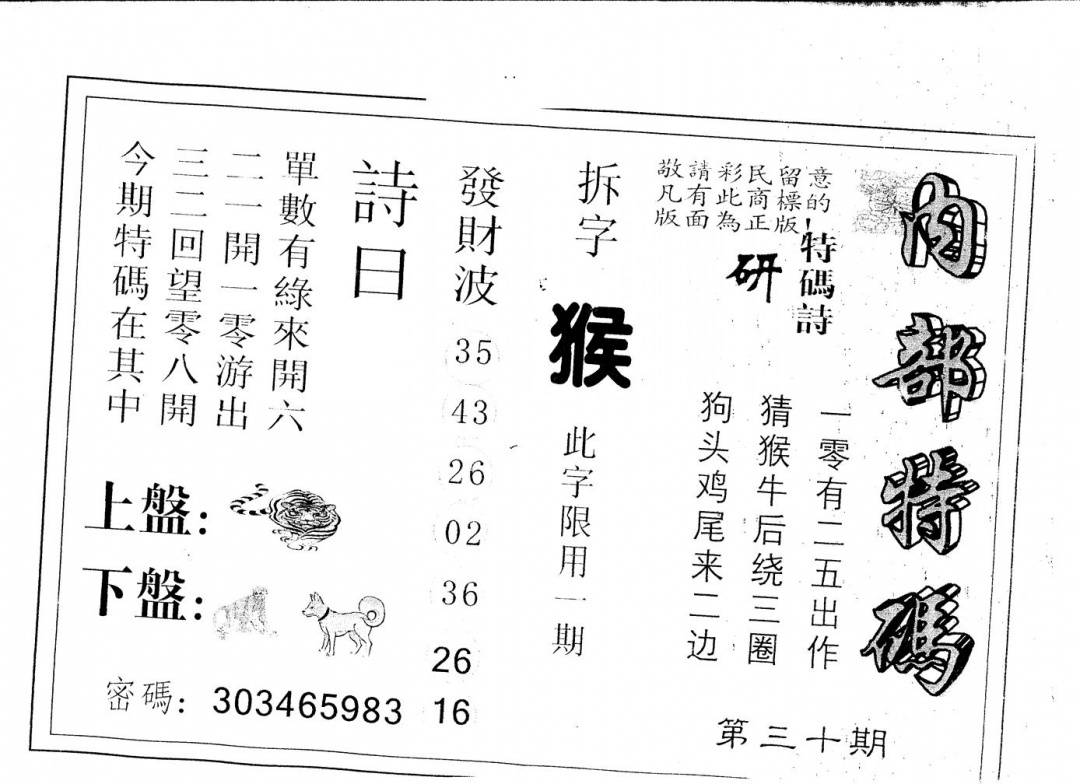 内部特碼
敬請彩民留意
凡有此商標的
版面為正版!
特碼詩
研
一零有二五出作
猜猴牛后绕三圈
狗头鸡尾来二边
第三十期
拆字
猴
此字限用一期
發財波
35
43
26
02
36
26
16
詩曰
單數有綠來開六
二一開一零游出
三二回望零八開
今期特碼在其中
上盤:
下盤:
密碼: 303465983